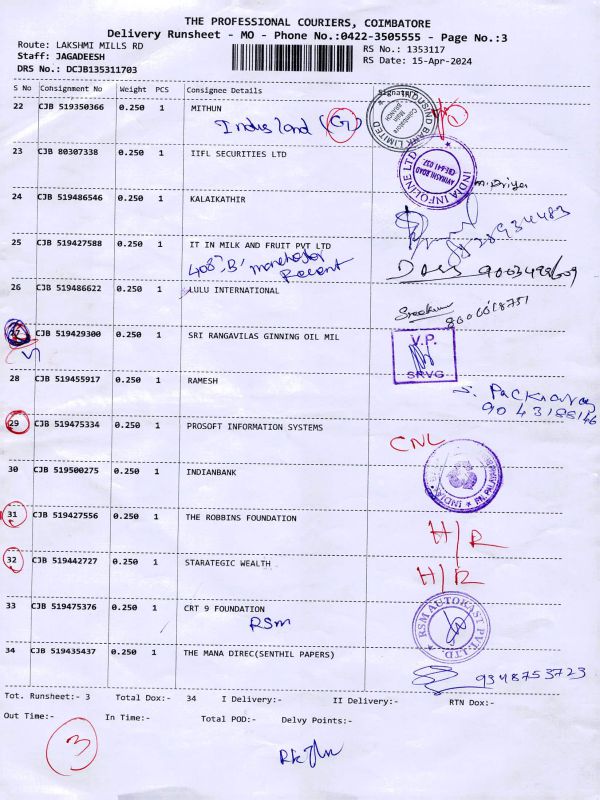 THE PROFESSIONAL COURIERS, COIMBATORE
Delivery Runsheet - MO - Phone No.:0422-3505555 - Page No.:3
Route: LAKSHMI MILLS RD
Staff: JAGADEESH
DRS No.: DCJB135311703
RS No.: 1353117
RS Date: 15-Apr-2024
S No Consignment No Weight PCS Consignee Details Signature
22 CJB 519350366 0.250 1 MITHUN
IndusInd (G)
INDUSIND BANK LIMITED Coimbatore Main Branch
23 CJB 80307338 0.250 1 IIFL SECURITIES LTD
INDIA INFOLINE LTD AVINASHI ROAD CBE-641 037.
24 CJB 519486546 0.250 1 KALAIKATHIR
25 CJB 519427588 0.250 1 IT IN MILK AND FRUIT PVT LTD
408 'B' manchester
26 CJB 519486622 0.250 1 LULU INTERNATIONAL
27 CJB 519429300 0.250 1 SRI RANGAVILAS GINNING OIL MIL
V.P.
SRVG
28 CJB 519455917 0.250 1 RAMESH
29 CJB 519475334 0.250 1 PROSOFT INFORMATION SYSTEMS
CNL
30 CJB 519500275 0.250 1 INDIANBANK
31 CJB 519427556 0.250 1 THE ROBBINS FOUNDATION
H/R
32 CJB 519442727 0.250 1 STARATEGIC WEALTH
H/R
33 CJB 519475376 0.250 1 CRT 9 FOUNDATION
RSM
RSM AUTOKAST PVT. LTD.
34 CJB 519435437 0.250 1 THE MANA DIREC(SENTHIL PAPERS)
9348753723
Tot. Runsheet:- 3 Total Dox:- 34 I Delivery:- II Delivery:- RTN Dox:-
Out Time:- In Time:- Total POD:- Delvy Points:-
3